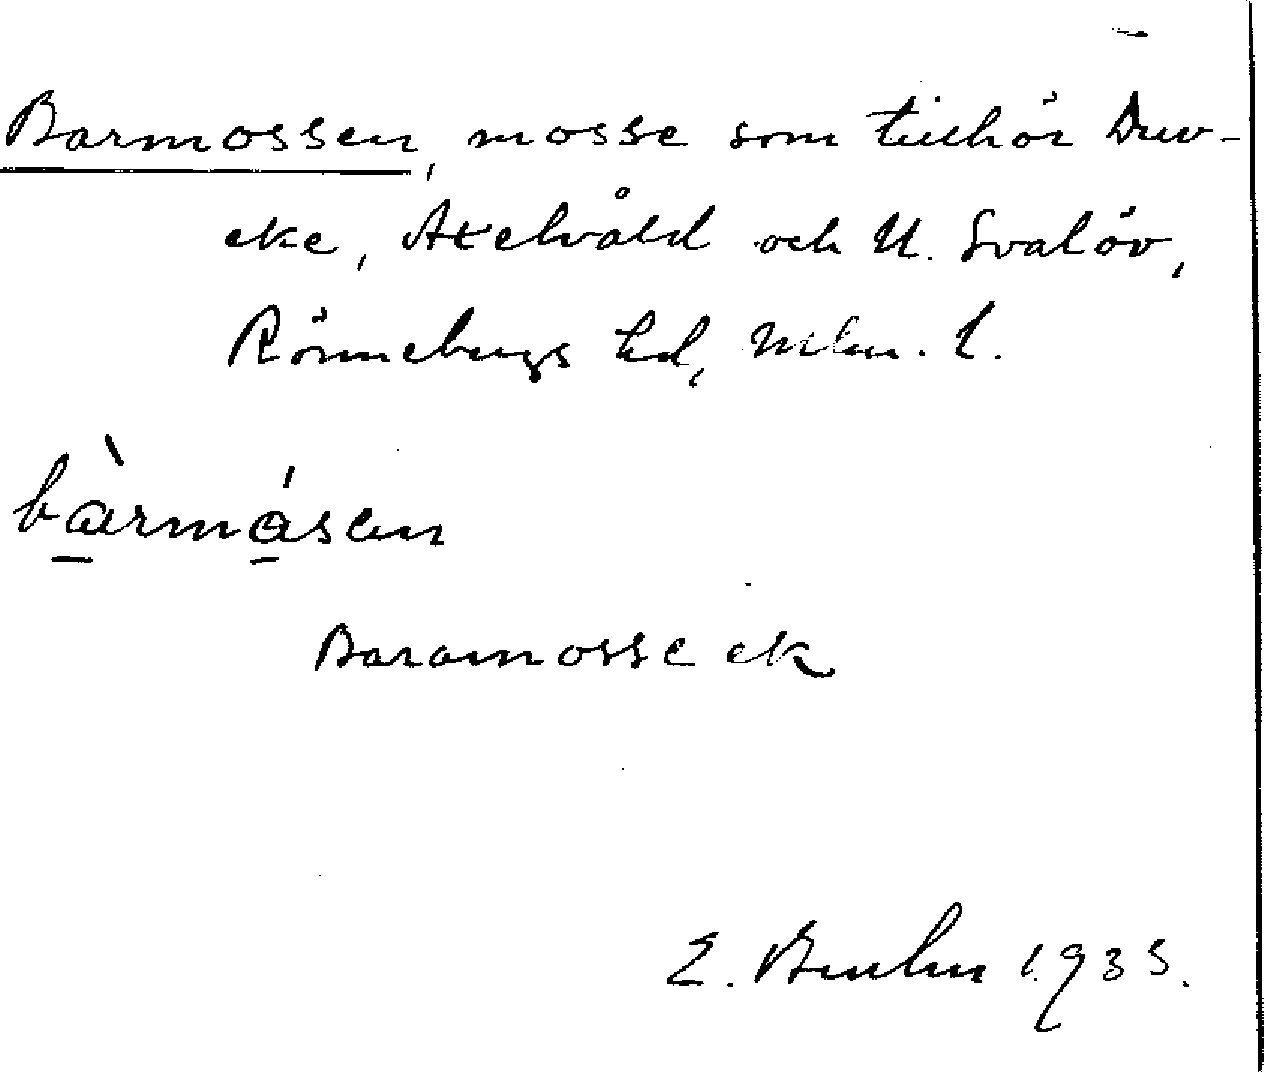 Barmossen, mosse som tillhör Duv-
eke, Axelvåld och U. Svalöv,
Rönnebergs hd, Mlm. l.
bàrmåsen
Baramosse ek
E. Bruhn 1935.